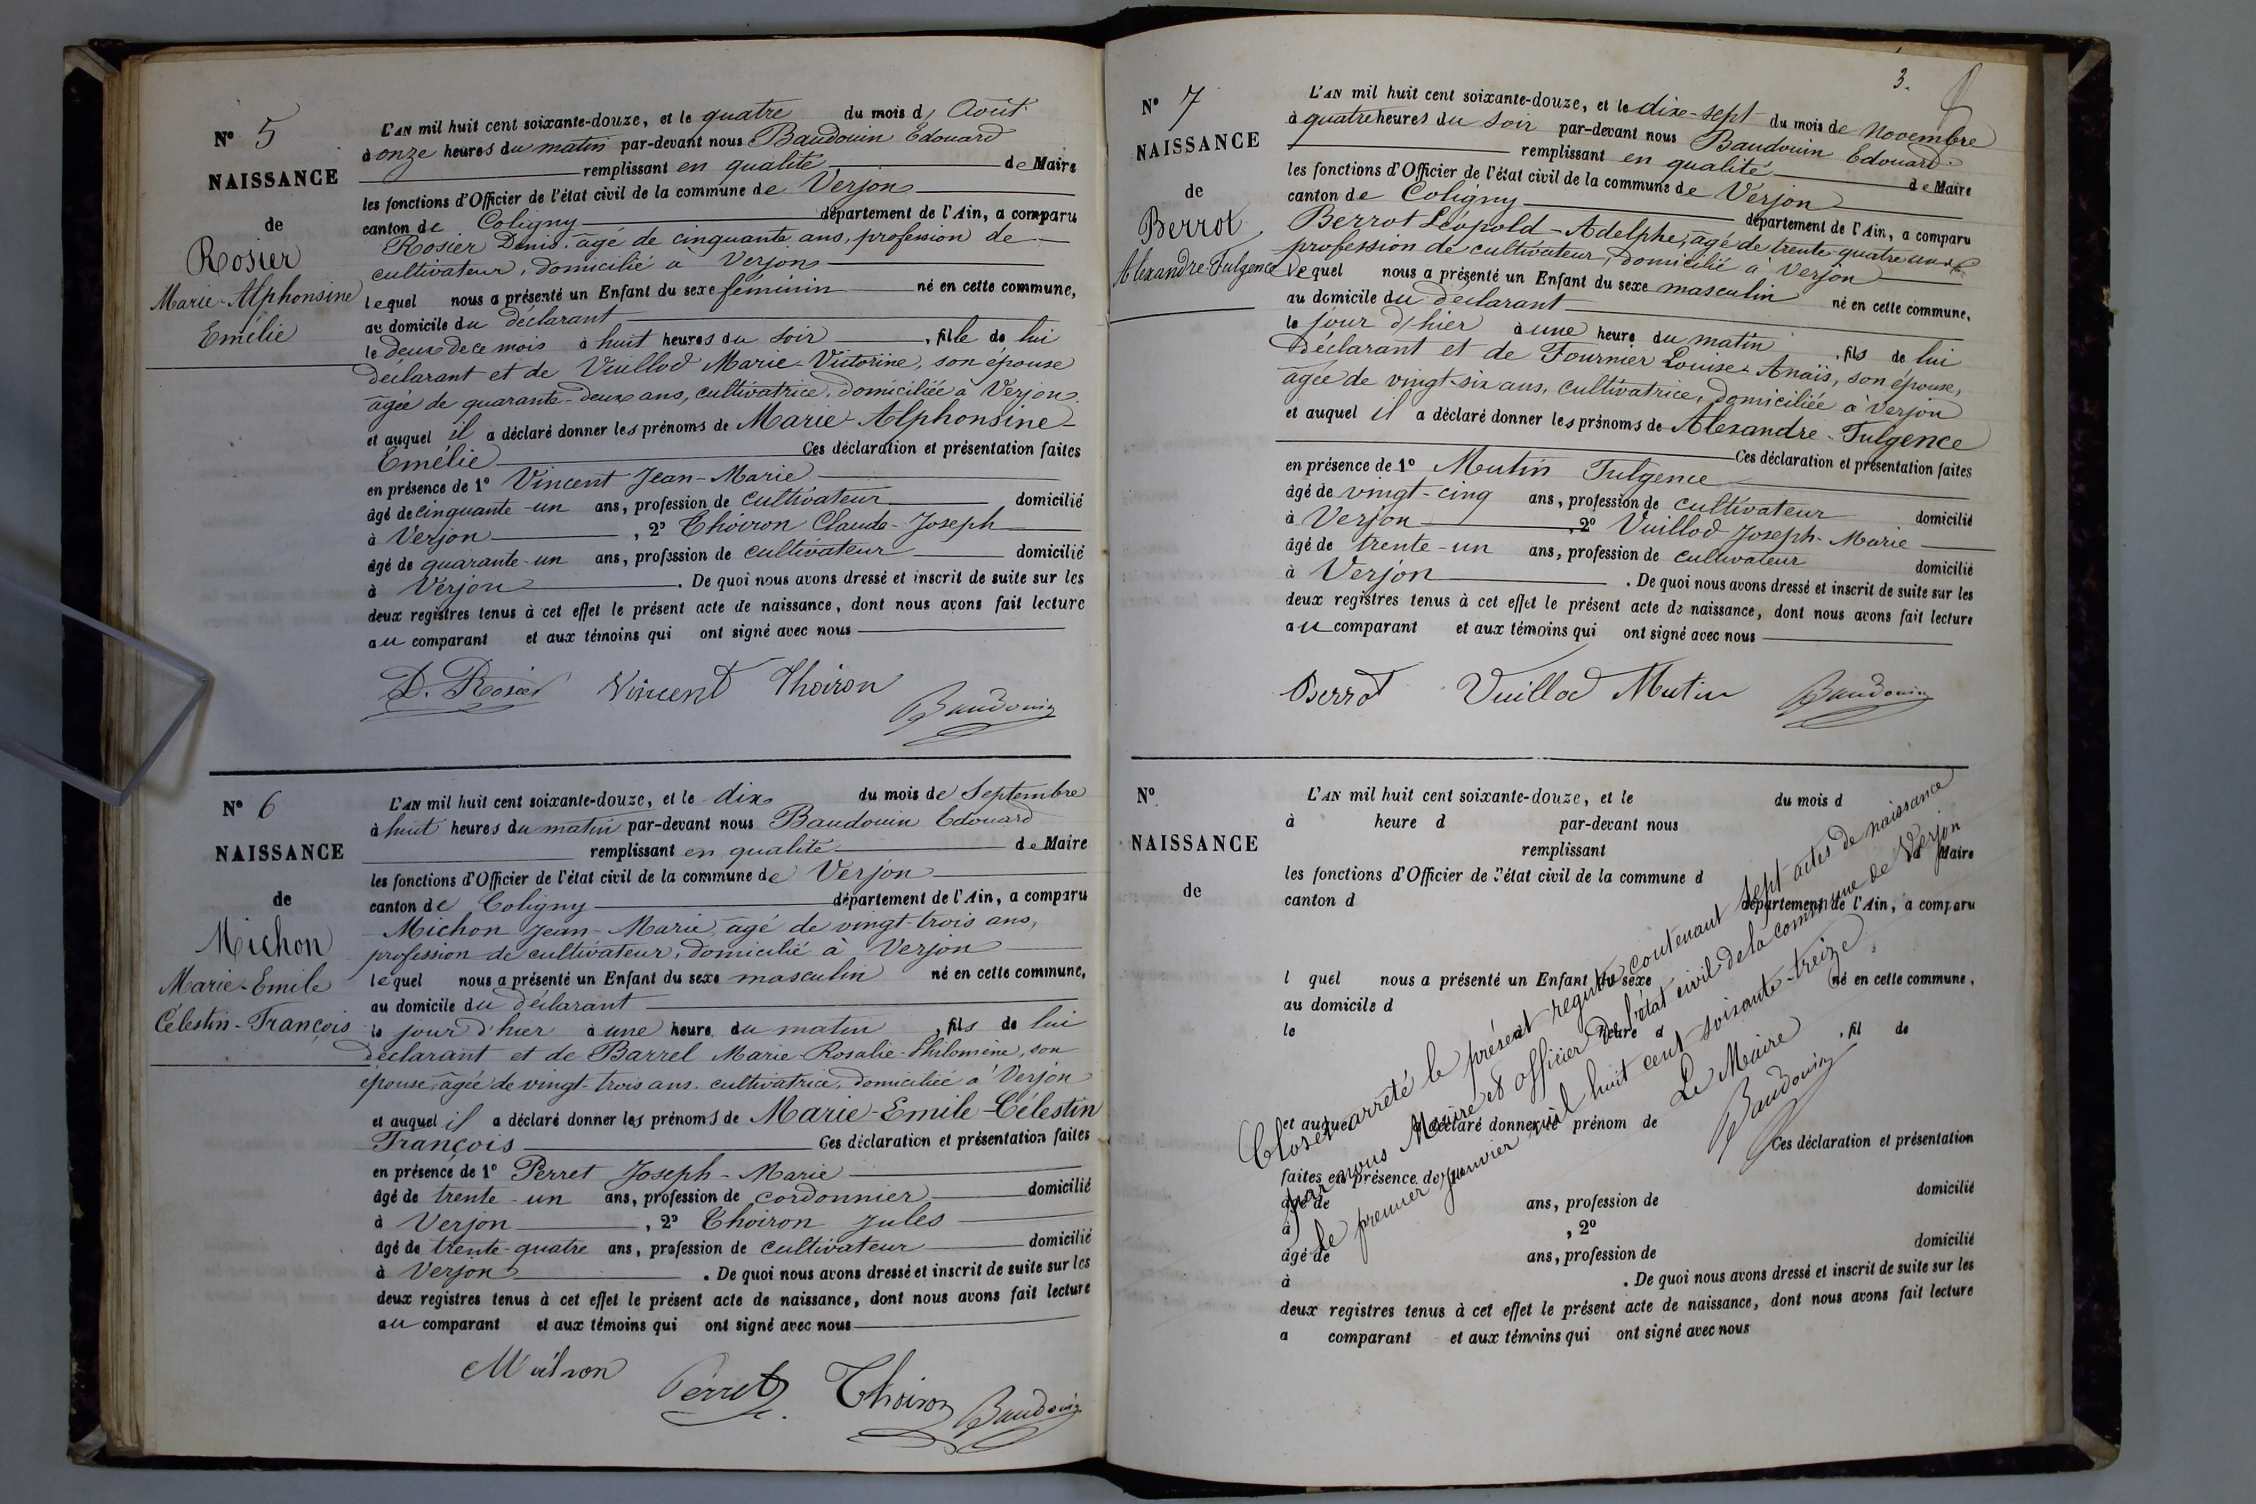 N° 5
NAISSANCE
de
Rosier
Marie-Alphonsine
Emélie
L'AN mil huit cent soixante-douze, et le quatre du mois d'Août
à onze heures du matin par-devant nous Baudouin Edouard
remplissant en qualité de Maire
les fonctions d'Officier de l'état civil de la commune de Verjon
canton de Coligny département de l'Ain, a comparu
Rosier Denis, âgé de cinquante ans, profession de
cultivateur, domicilié à Verjon
lequel nous a présenté un Enfant du sexe féminin né en cette commune,
au domicile du déclarant
le deux de ce mois à huit heures du soir, fille de lui
déclarant et de Vuillod Marie-Victorine, son épouse
âgée de quarante-deux ans, cultivatrice, domiciliée à Verjon.
et auquel il a déclaré donner les prénoms de Marie-Alphonsine-
Emélie Ces déclaration et présentation faites
en présence de 1° Vincent Jean-Marie
âgé de cinquante-un ans, profession de cultivateur domicilié
à Verjon, 2° Thoiron Claude-Joseph
âgé de quarante-un ans, profession de cultivateur domicilié
à Verjon. De quoi nous avons dressé et inscrit de suite sur les
deux registres tenus à cet effet le présent acte de naissance, dont nous avons fait lecture
au comparant et aux témoins qui ont signé avec nous
D. Rosier Vincent Thoiron Baudouin
N° 6
NAISSANCE
de
Michon
Marie-Emile
Célestin-François
L'AN mil huit cent soixante-douze, et le dix du mois de Septembre
à huit heures du matin par-devant nous Baudouin Edouard
remplissant en qualité de Maire
les fonctions d'Officier de l'état civil de la commune de Verjon
canton de Coligny département de l'Ain, a comparu
Michon Jean-Marie, âgé de vingt-trois ans,
profession de cultivateur, domicilié à Verjon
lequel nous a présenté un Enfant du sexe masculin né en cette commune,
au domicile du déclarant
le jour d'hier à une heure du matin, fils de lui
déclarant et de Barrel Marie-Rosalie-Philomène, son
épouse, âgée de vingt-trois ans, cultivatrice, domiciliée à Verjon
et auquel il a déclaré donner les prénoms de Marie-Emile-Célestin
François Ces déclaration et présentation faites
en présence de 1° Perret Joseph-Marie
âgé de trente-un ans, profession de cordonnier domicilié
à Verjon, 2° Thoiron Jules
âgé de trente-quatre ans, profession de cultivateur domicilié
à Verjon. De quoi nous avons dressé et inscrit de suite sur les
deux registres tenus à cet effet le présent acte de naissance, dont nous avons fait lecture
au comparant et aux témoins qui ont signé avec nous
Michon Perret Thoiron Baudouin
3.
N° 7
NAISSANCE
de
Berrot
Alexandre-Fulgence
L'AN mil huit cent soixante-douze, et le dixe-sept du mois de Novembre
à quatre heures du soir par-devant nous Baudouin Edouard
remplissant en qualité de Maire
les fonctions d'Officier de l'état civil de la commune de Verjon
canton de Coligny département de l'Ain, a comparu
Berrot Léopold-Adelphe, âgé de trente-quatre ans,
profession de cultivateur, domicilié à Verjon
lequel nous a présenté un Enfant du sexe masculin né en cette commune,
au domicile du déclarant
le jour d'hier à une heure du matin, fils de lui
déclarant et de Fournier Louise-Anaïs, son épouse,
âgée de vingt-six ans, cultivatrice, domiciliée à Verjon
et auquel il a déclaré donner les prénoms de Alexandre-Fulgence
Ces déclaration et présentation faites
en présence de 1° Mutin Fulgence
âgé de vingt-cinq ans, profession de cultivateur domicilié
à Verjon, 2° Vuillod Joseph-Marie
âgé de trente-un ans, profession de cultivateur domicilié
à Verjon. De quoi nous avons dressé et inscrit de suite sur les
deux registres tenus à cet effet le présent acte de naissance, dont nous avons fait lecture
au comparant et aux témoins qui ont signé avec nous
Berrot Vuillod Mutin Baudouin
N°
NAISSANCE
de
L'AN mil huit cent soixante-douze, et le du mois d
à heure d par-devant nous
remplissant d Maire
les fonctions d'Officier de l'état civil de la commune d
canton d département de l'Ain, a comparu
l quel nous a présenté un Enfant du sexe né en cette commune,
au domicile d
le heure d , fil de
et auquel a déclaré donner le prénom de
Ces déclaration et présentation
faites en présence de 1°
âgé de ans, profession de domicilié
à , 2°
âgé de ans, profession de domicilié
à . De quoi nous avons dressé et inscrit de suite sur les
deux registres tenus à cet effet le présent acte de naissance, dont nous avons fait lecture
a comparant et aux témoins qui ont signé avec nous
Clos et arrêté le présent registre contenant sept actes de naissance
par nous Maire et officier de l'état civil de la commune de Verjon
le premier Janvier mil huit cent soixante-treize
Le Maire
Baudouin